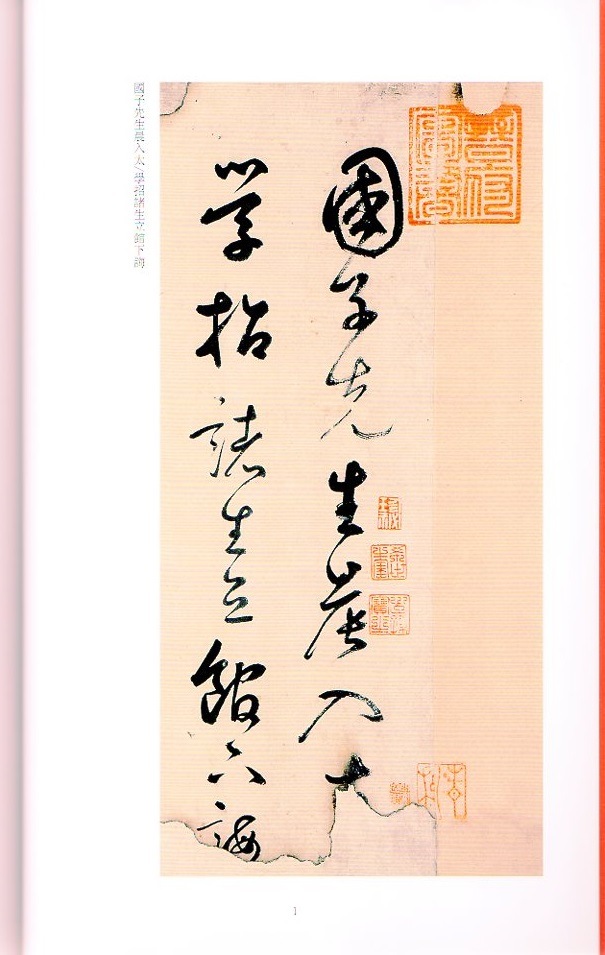 國子先生晨入大
学招諸生立館下誨
國子先生晨入太學招諸生立館下誨
1